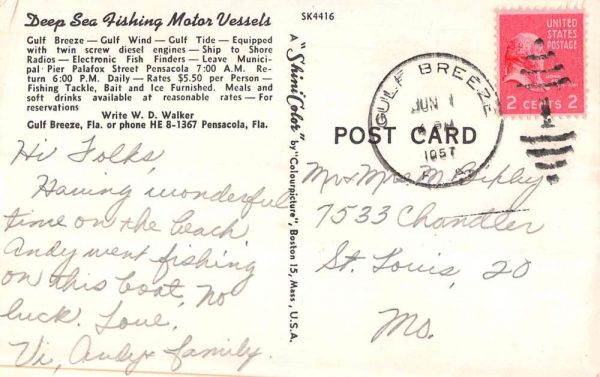 Deep Sea Fishing Motor Vessels
Gulf Breeze — Gulf Wind — Gulf Tide — Equipped
with twin screw diesel engines — Ship to Shore
Radios — Electronic Fish Finders — Leave Munici-
pal Pier Palafox Street Pensacola 7:00 A.M. Re-
turn 6:00 P.M. Daily — Rates $5.50 per Person —
Fishing Tackle, Bait and Ice Furnished. Meals and
soft drinks available at reasonable rates — For
reservations
Write W. D. Walker
Gulf Breeze, Fla. or phone HE 8-1367 Pensacola, Fla.
Hi Folks,
Having wonderful
time on the beach
Andy went fishing
on this boat, no
luck. Love,
Vi, Andy & family.
SK4416
A "ShiniColor" by "Colourpicture", Boston 15, Mass., U.S.A.
POST CARD
GULF BREEZE
JUN 1
1957
UNITED
STATES
POSTAGE
2 CENTS 2
Mr & Mrs M.
7533 Chandler
St. Louis, 20
Mo.